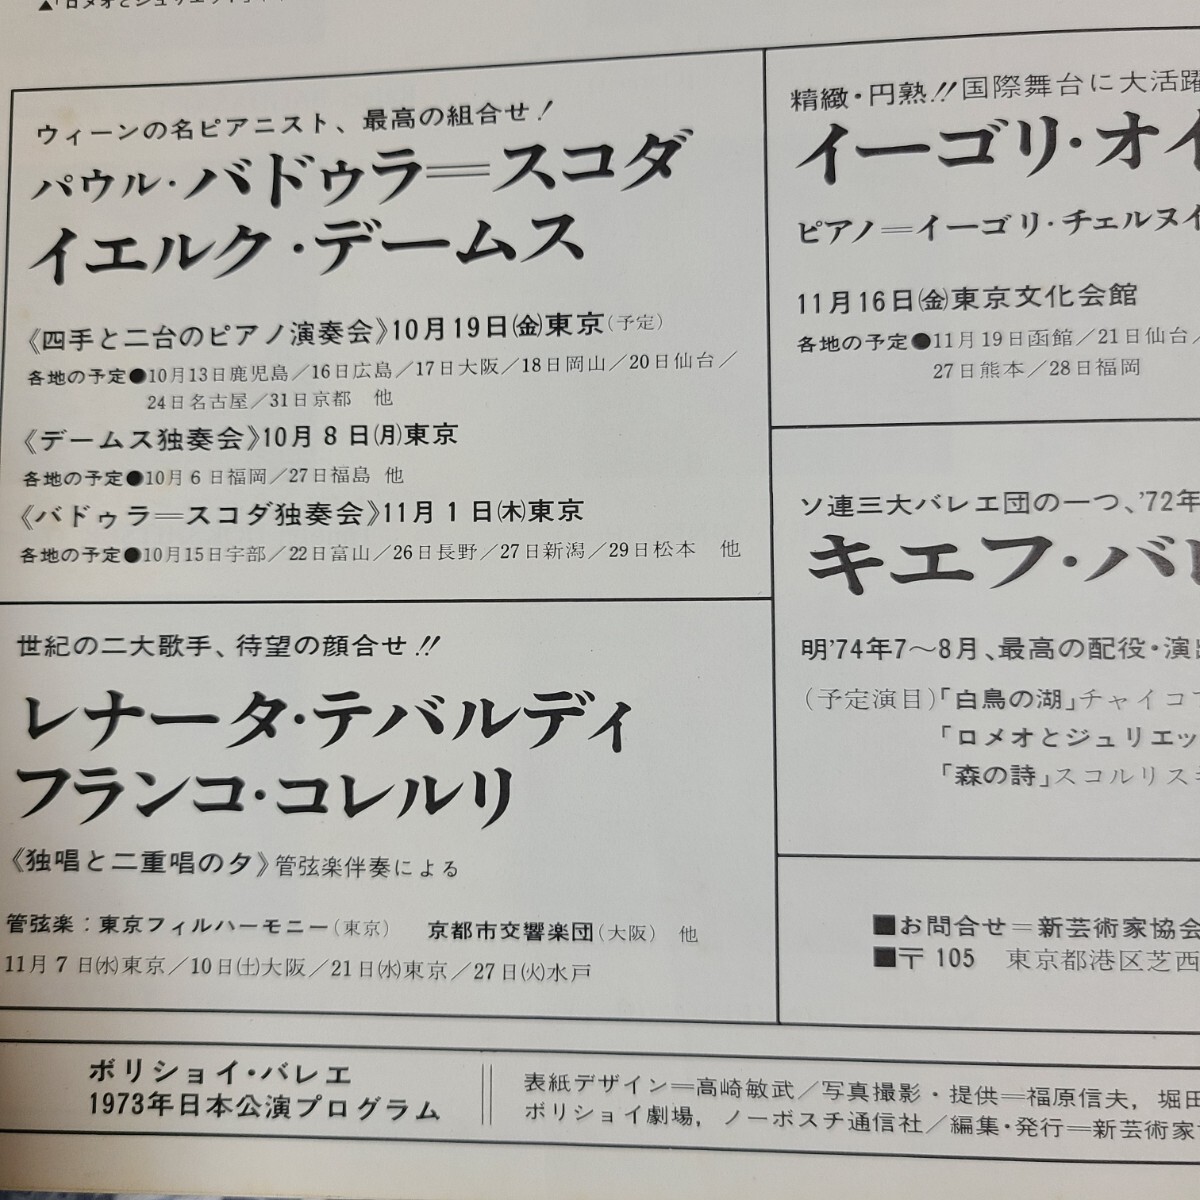 ▲「ロメオとジュリエット」
ウィーンの名ピアニスト、最高の組合せ！
パウル・バドゥラ＝スコダ
イエルク・デームス
《四手と二台のピアノ演奏会》10月19日㈮東京(予定)
各地の予定●10月13日鹿児島／16日広島／17日大阪／18日岡山／20日仙台／
24日名古屋／31日京都　他
《デームス独奏会》10月8日㈪東京
各地の予定●10月6日福岡／27日福島　他
《バドゥラ＝スコダ独奏会》11月1日㈭東京
各地の予定●10月15日宇部／22日富山／26日長野／27日新潟／29日松本　他
世紀の二大歌手、待望の顔合せ!!
レナータ・テバルディ
フランコ・コレルリ
《独唱と二重唱の夕》管弦楽伴奏による
管弦楽：東京フィルハーモニー(東京)　京都市交響楽団(大阪)　他
11月7日㈬東京／10日㈯大阪／21日㈬東京／27日㈫水戸
精緻・円熟!!国際舞台に大活躍
イーゴリ・オイ
ピアノ＝イーゴリ・チェルヌイ
11月16日㈮東京文化会館
各地の予定●11月19日函館／21日仙台／
27日熊本／28日福岡
ソ連三大バレエ団の一つ、'72年
キエフ・バレ
明'74年7～8月、最高の配役・演出
(予定演目)「白鳥の湖」チャイコ
「ロメオとジュリエッ
「森の詩」スコルリス
■お問合せ＝新芸術家協会
■〒105　東京都港区芝西
ボリショイ・バレエ
1973年日本公演プログラム
表紙デザイン＝高崎敏武／写真撮影・提供＝福原信夫，堀田
ボリショイ劇場，ノーボスチ通信社／編集・発行＝新芸術家